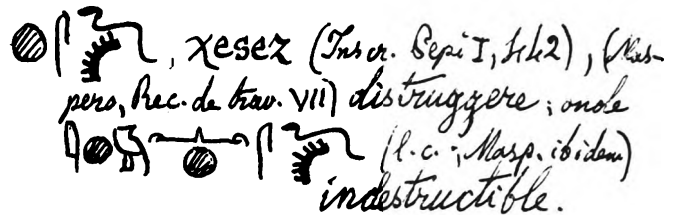 , χesez (Inscr. Pepi I, 442), (Mas-
pero, Rec. de trav. VII) distruggere; onde
(l.c.; Masp. ibidem)
indestructible.